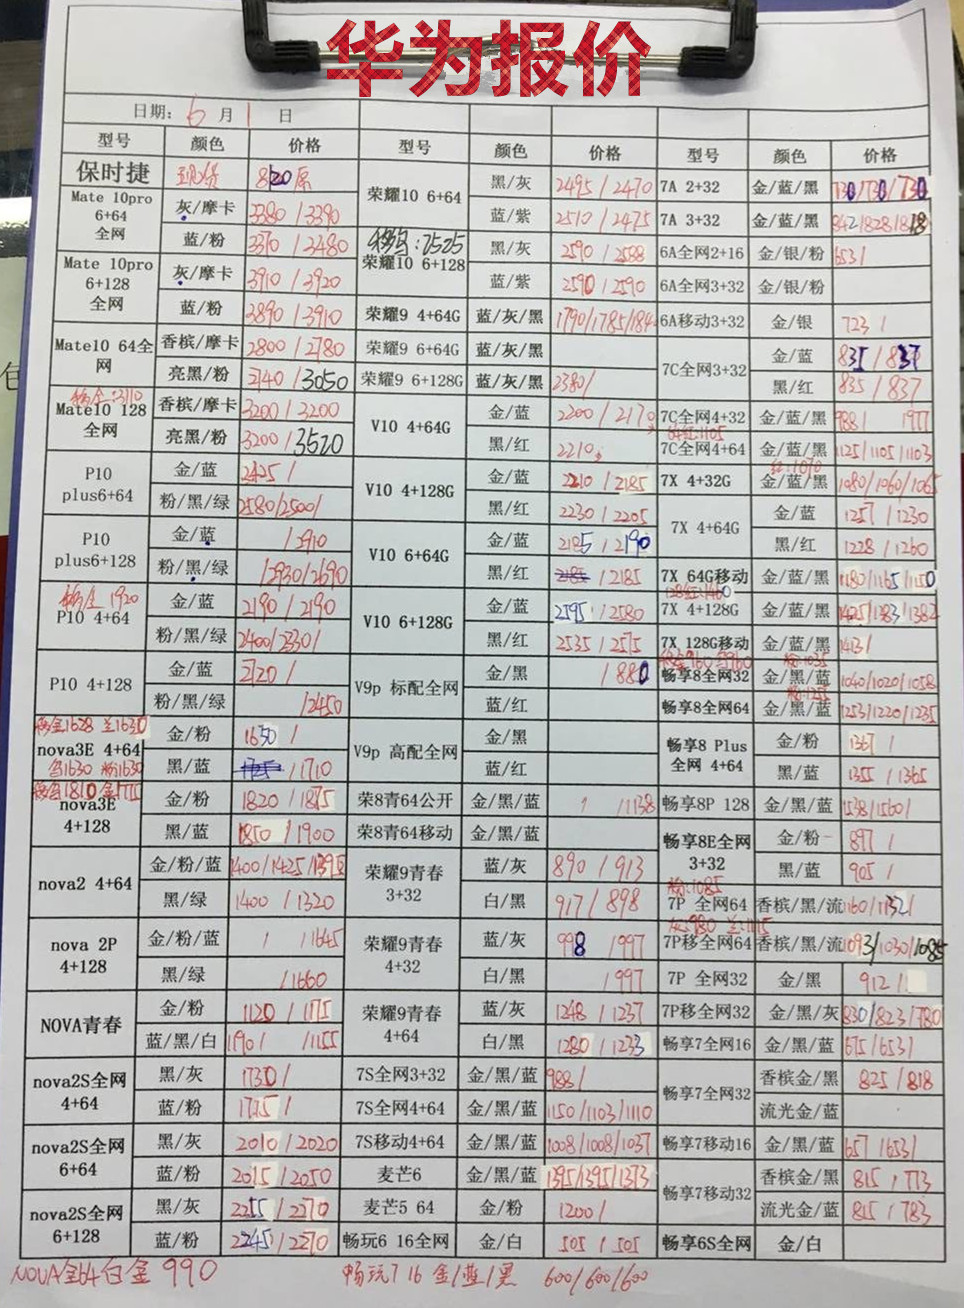 华为报价
日期: 6 月 1 日
型号 颜色 价格 型号 颜色 价格 型号 颜色 价格
保时捷 现货 8820原 荣耀10 6+64 黑/灰 2495/2470 7A 2+32 金/蓝/黑 730/730/730
Mate 10pro 6+64 全网 灰/摩卡 3380/3390 蓝/紫 2510/2475 7A 3+32 金/蓝/黑 842/828/818
蓝/粉 3370/3480 移动:2525 荣耀10 6+128 黑/灰 2590/2588 6A全网2+16 金/银/粉 653/
Mate 10pro 6+128 全网 灰/摩卡 3910/3920 蓝/紫 2590/2590 6A全网3+32 金/银/粉
蓝/粉 3890/3910 荣耀9 4+64G 蓝/灰/黑 1790/1785/184 6A移动3+32 金/银 723/
Mate10 64全网 香槟/摩卡 2800/2780 荣耀9 6+64G 蓝/灰/黑 7C全网3+32 金/蓝 835/837
亮黑/粉 2740/3050 荣耀9 6+128G 蓝/灰/黑 2380/ 黑/红 835/837
移金:3110
Mate10 128 全网 香槟/摩卡 3200/3200 V10 4+64G 金/蓝 2200/2170 7C全网4+32 金/蓝/黑 988/ 977
亮黑/粉 3200/3520 黑/红 2210 64红:1105 7C全网4+64 金/蓝/黑 1125/1105/1103
P10 plus6+64 金/蓝 2425/ V10 4+128G 金/蓝 2210/2185 7X 4+32G 红:1070 金/蓝/黑 1080/1060/1065
粉/黑/绿 2580/2500/ 黑/红 2230/2205 7X 4+64G 金/蓝 1257/1230
P10 plus6+128 金/蓝 /2910 V10 6+64G 金/蓝 2185/2190 黑/红 1228/1260
粉/黑/绿 /2930/2690 黑/红 /2185 7X 64G移动 金/蓝/黑 1180/1165/1150
移金 1920
P10 4+64 金/蓝 2190/2190 V10 6+128G 金/蓝 2595/2580 128红:1460 7X 4+128G 金/蓝/黑 1425/1383/1382
粉/黑/绿 2400/2330/ 黑/红 2535/2575 7X 128G移动 金/蓝/黑 1413/
P10 4+128 金/蓝 2720/ V9p 标配全网 金/黑 /1880 畅享8全网32 粉:1035 金/黑/蓝 1040/1020/1058
粉/黑/绿 /2450 蓝/红 畅享8全网64 金/黑/蓝 1253/1220/1235
移金1628 兰1630
nova3E 4+64 金/粉 1650/ V9p 高配全网 金/黑 畅享8 Plus 全网 4+64 金/粉 1367/
黑1630 粉1630 黑/蓝 /1710 蓝/红 黑/蓝 1355/1365
nova3E 4+128 金/粉 1820/1875 荣8青64公开 金/黑/蓝 / /1138 畅享8P 128 金/黑/蓝 1538/1560/
黑/蓝 1850/1900 荣8青64移动 金/黑/蓝 畅享8E全网 3+32 金/粉 897/
nova2 4+64 金/粉/蓝 1400/1425/1395 荣耀9青春 3+32 蓝/灰 890/913 黑/蓝 905/
黑/绿 1400/1320 白/黑 917/898 粉:1085 7P 全网64 香槟/黑/流 1160/1132/
nova 2P 4+128 金/粉/蓝 / /1645 荣耀9青春 4+32 蓝/灰 998/997 灰:980 兰:1115 7P移全网64 香槟/黑/流 1093/1030/1085
黑/绿 /1660 白/黑 /997 7P 全网32 金/黑 912/
NOVA青春 金/粉 1120/1175 荣耀9青春 4+64 蓝/灰 1248/1237 7P移全网32 金/黑/灰 830/823/780
蓝/黑/白 1190/ /1155 白/黑 1280/1233 畅享7全网16 金/黑/蓝 675/653/
nova2S全网 4+64 黑/灰 1730/ 7S全网3+32 金/黑/蓝 988/ 畅享7全网32 香槟金/黑 825/818
蓝/粉 1725/ 7S全网4+64 金/黑/蓝 1150/1103/1110 流光金/蓝
nova2S全网 6+64 黑/灰 2010/2020 7S移动4+64 金/黑/蓝 1008/1008/1037 畅享7移动16 金/黑/蓝 657/653/
蓝/粉 2015/2050 麦芒6 金/黑/蓝 1395/1395/1373 畅享7移动32 香槟金/黑 815/773
nova2S全网 6+128 黑/灰 2255/2270 麦芒5 64 金/粉 1200/ 流光金/蓝 815/783
蓝/粉 2245/2270 畅玩6 16全网 金/白 505/505 畅享6S全网 金/白
NOVA全64白金 990 畅玩7 16 金/蓝/黑 600/600/600